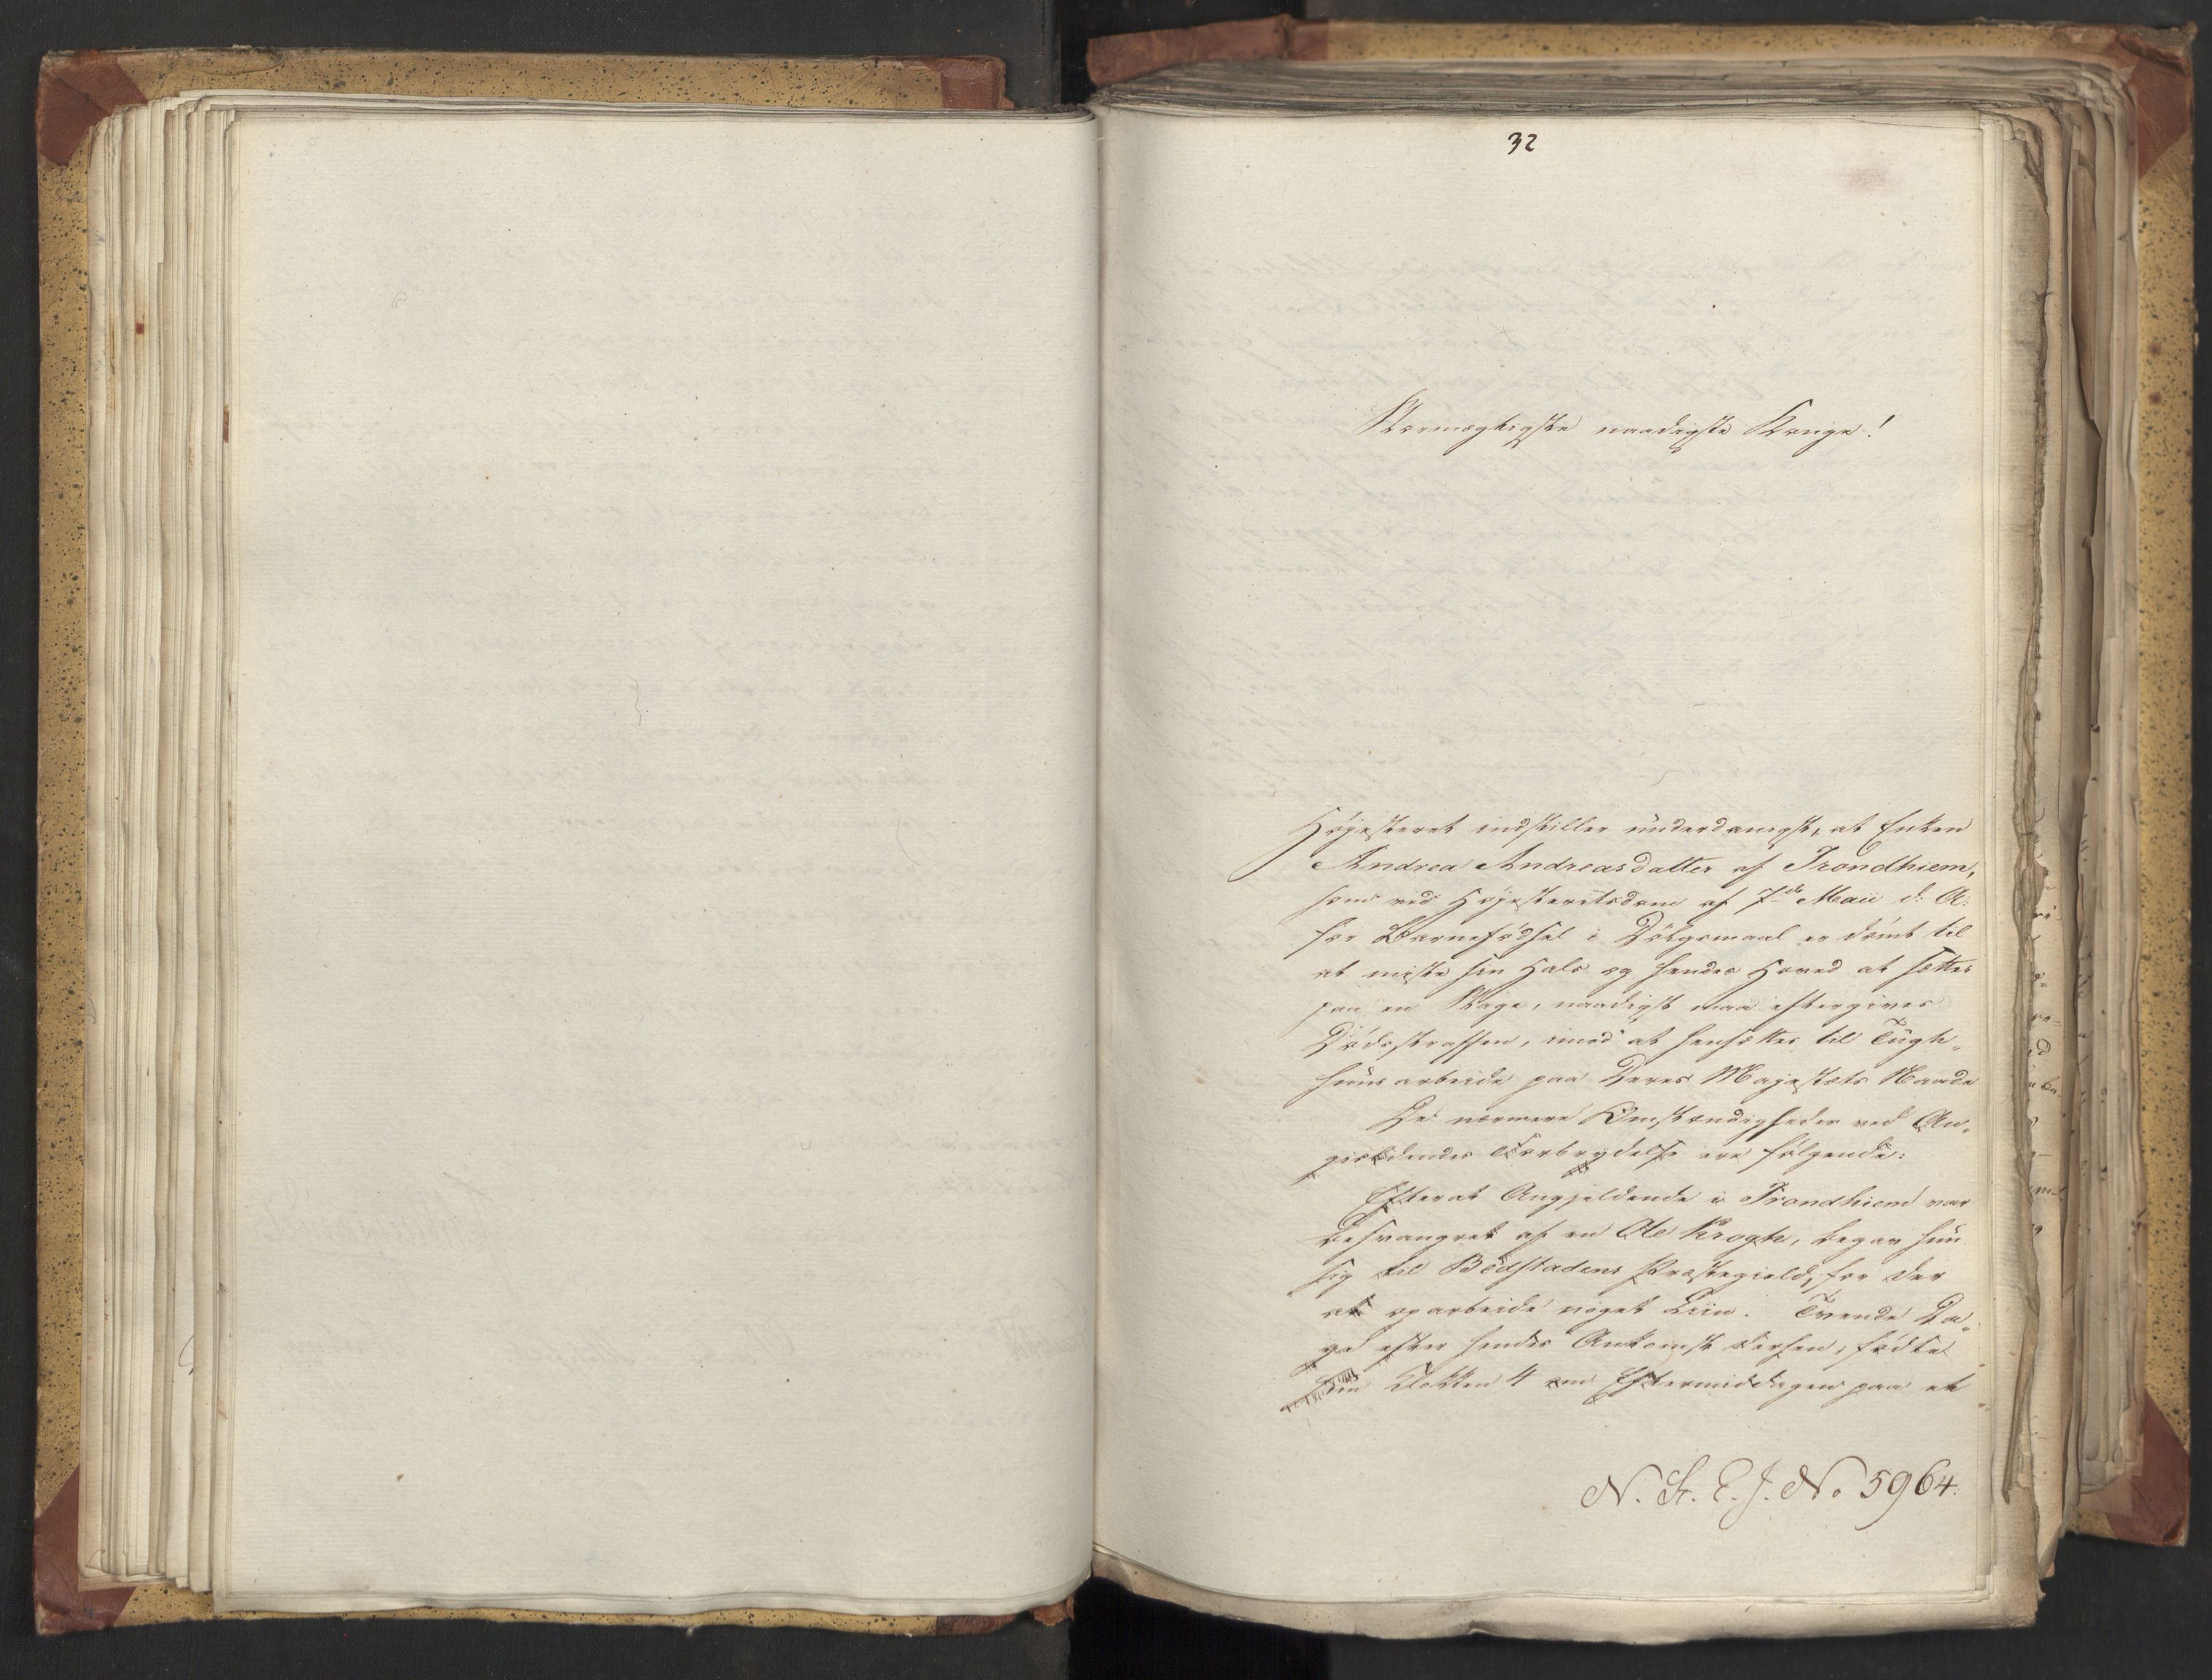 32
Stormægtigste naadigste Konge!
Høiesteret indstiller underdanigst, at Enken
Andrea Andreasdatter af Trondhiem,
som ved Høiesteretsdom af 7de Maii d: A:
for Barnefødsel i Dølgsmaal er dømt til
at miste sin Hals og hendes Hoved at sættes
paa en Stage, naadigst maa eftergives
Dødsstraffen, imod at hensættes til Tugt-
huusarbeide paa Deres Majestæts Naade
De nærmere Omstændigheder ved An-
gieldendes Forbrydelse ere følgende:
Efterat Angjeldende i Trondhiem var
besvangret af en Ole Krogh, begav hun
sig til Bødstadens Præstegield, for der
at oparbeide noget Liin. Tvende Da-
ge efter hendes Ankomst dertil, fødte
hun Klokken 4 om Eftermiddagen paa et
N. St. E. J. No 5964.